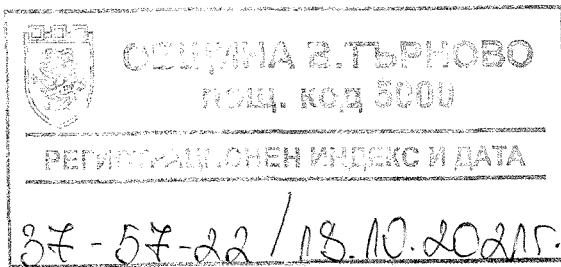 ОБЩИНА В.ТЪРНОВО
пощ. код 5000
РЕГИСТРАЦИОНЕН ИНДЕКС И ДАТА
37-57-22/18.10.2021г.